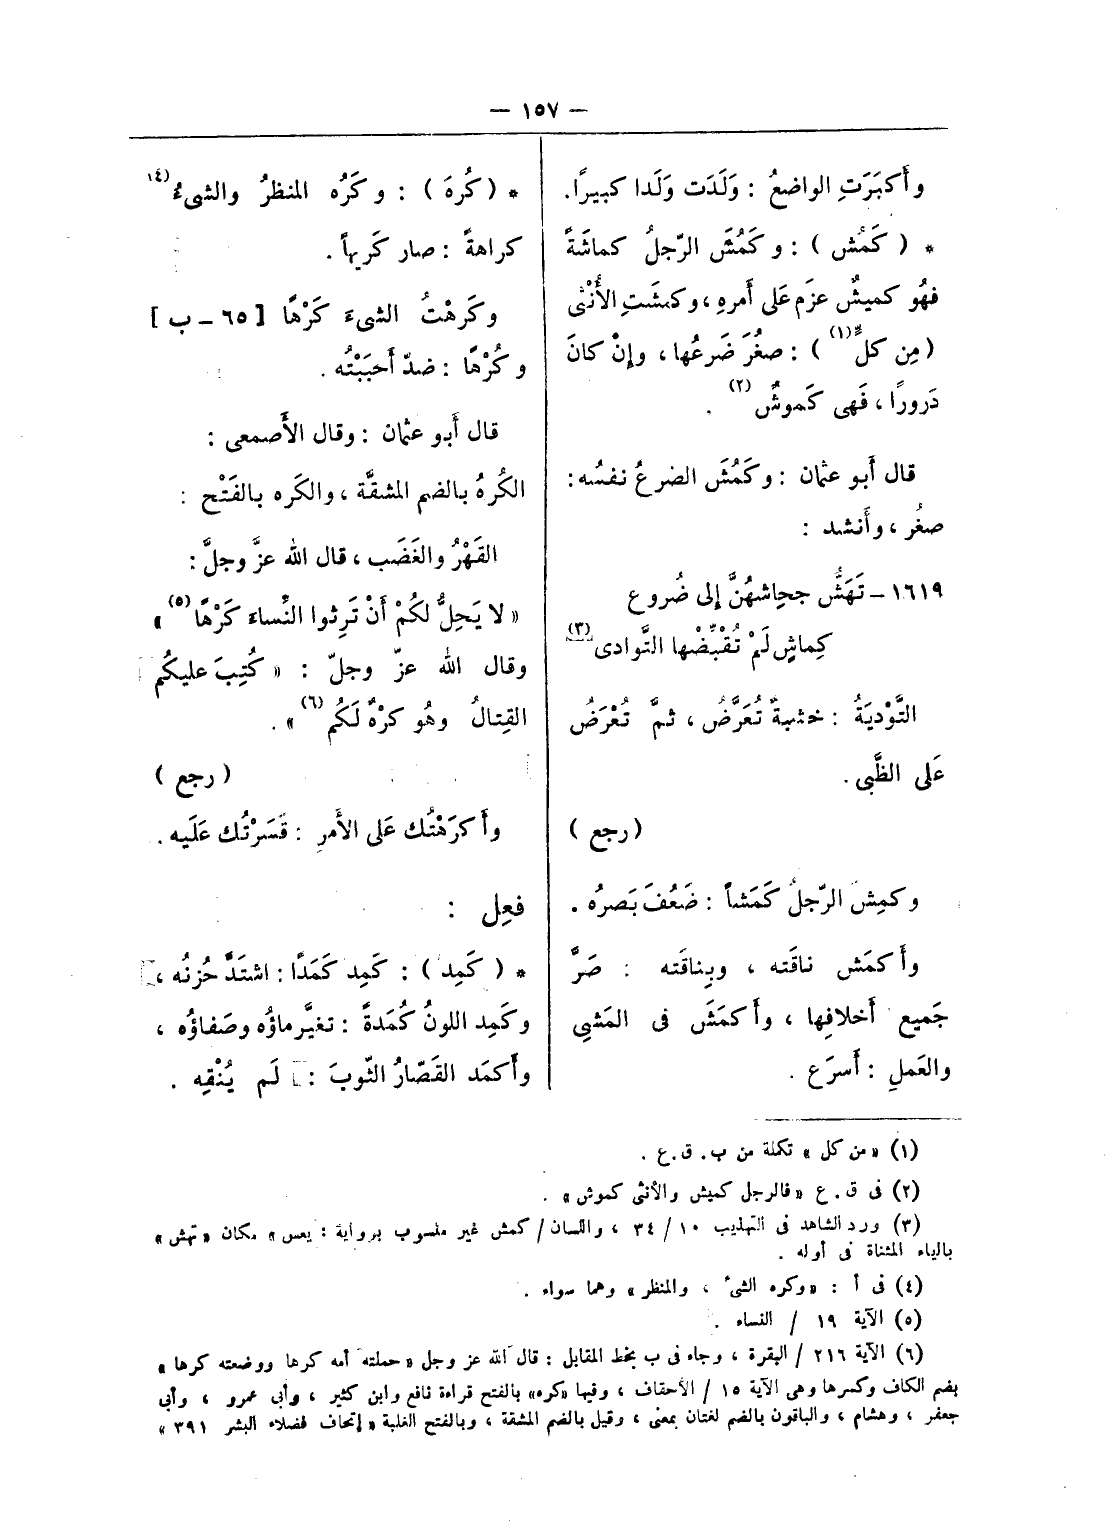 — ١٥٧ —
وأَكبَرَتِ الواضعُ : وَلَدَت وَلَدا كبيرًا.
* ( كَمُش ) : و كَمُشَ الرّجلُ كماشَةً
فهُو كميشٌ عزَم عَلى أَمرهِ ، وكمشَتِ الأُنْثى
( مِن كلٍّ (١) ) : صغُرَ ضَرعُها ، وإنْ كانَ
دَرورًا ، فَهى كَموشٌ (٢) .
قال أَبو عثمان : وكَمُشَ الضرعُ نفسُه :
صغُر ، وأَنشد :
١٦١٩ – تَهَشُّ جحِاشهُنَّ إلى ضُروع
كِماشٍ لَمْ تُقبِّضْها التَّوادى (٣)
التَّوْديَةُ : خشبةٌ تُعَرَّضُ ، ثمَّ تُعْرَضُ
عَلى الظَّبى .
( رجع )
وكمِشَ الرّجلُ كَمَشاً : ضَعُفَ بَصرُه .
وأَكمَش ناقَته ، وبِناقَته : صَرَّ
جَميع أَخلافِها ، وأَكمَشَ فى المَشىِ
والعَملِ : أَسرَع .
* ( كُرهَ ) : و كَرُه المنظرُ والشىءُ (٤)
كراهةً : صار كَريهاً .
وكَرِهْتُ الشىءَ كَرْهًا [ ٦٥ – ب ]
وكُرْهًا : ضدّ أَحبَبْتُه .
قال أَبو عثمان : وقال الأَصمعى :
الكُرهُ بالضم المشقَّة ، والكَره بالفَتْح :
القَهْرُ والغَضَب ، قال الله عزَّ وجلَّ :
« لا يَحِلُّ لكُمْ أَنْ تَرِثوا النِّساءَ كَرْهًا (٥) »
وقال الله عزّ وجلّ : « كُتِبَ عليكُم
القِتالُ وهُو كرْهٌ لَكُم (٦) » .
( رجع )
وأَكرَهْتُك عَلى الأَمرِ : قَسَرْتُك عَلَيه .
فعِل :
* ( كَمِد ) : كَمِد كَمَدًا : اشتَدَّ حُزنُه ،
وكَمِد اللونُ كُمَدةً : تغيَّر ماؤُه وصَفاؤُه ،
وأَكمَد القَصّارُ الثّوبَ : لَم يُنْقِه .
(١) « من كل » تكملة من ب . ق . ع .
(٢) فى ق . ع « فالرجل كميش والأنثى كموش » .
(٣) ورد الشاهد فى التهذيب ١٠ / ٣٤ ، واللسان / كمش غير منسوب برواية : يعس » مكان « تهش »
بالياء المثناة فى أوله .
(٤) فى أ : « وكره الشىء ، والمنظر » وهما سواء .
(٥) الآية ١٩ / النساء .
(٦) الآية ٢١٦ / البقرة ، وجاء فى ب بخط المقابل : قال الله عز وجل « حملته أمه كرها ووضعته كرها »
بضم الكاف وكسرها وهى الآية ١٥ / الأحقاف ، وفيها « كره » بالفتح قراءة نافع وابن كثير ، وأبى عمرو ، وأبى
جعفر ، وهشام ، والباقون بالضم لغتان بمعنى ، وقيل بالضم المشقة ، وبالفتح الغلبة « إتحاف فضلاء البشر ٣٩١ »